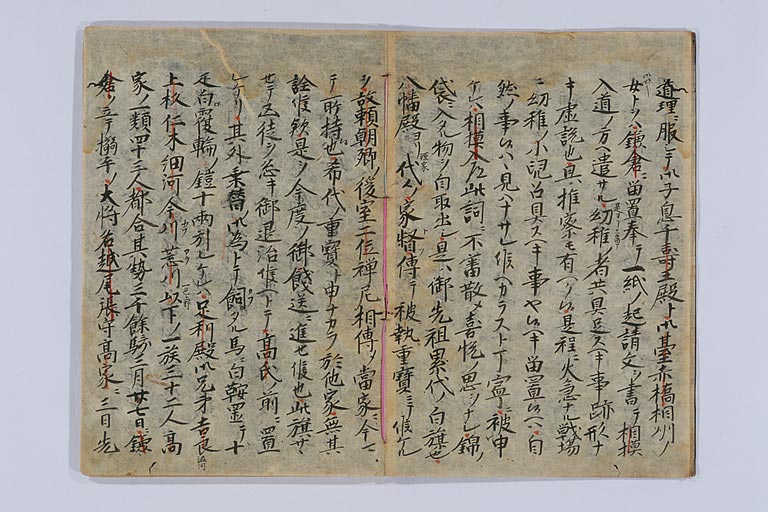 道理ニ服シテ御子息千壽王殿ト御臺赤橋相州ノ
女トヲハ鎌倉ニ留置奉テ一紙ノ起請文ヲ書テ相模
入道ノ方ヘ遣サル幼稚ノ者共具足スヘキ事跡形ナ
キ虚説也且推察モ有ヘシ是程ニ火急ナル戦場
ニ幼稚ノ小児召具スヘキ事ヤ候ヘキ留置候ヘハ自
然ノ事ハ見ハナサレ候ヘカラスト丁寧ニ被申
ケレハ相模入道此詞ニ不審散メ喜悦ノ思ヲナシ錦ノ
袋ニ入タル物ヲ自取出シ是ハ御先祖累代ノ白旗也
八幡殿ヨリ代々ノ家督傳テ被執重寶ニテ候ケル
ヲ故頼朝卿ノ後室二位禅尼相傳シ當家ニ今マ
テ所持也希代ノ重寶ト申ナカラ於他家無其
詮候歟是ヲ今度ノ御餞送ニ進セ候也此旗サヽ
セテ凶徒ヲ急キ御退治候ヘトテ高氏ノ前ニ置
レケリ其外乗替ノ為トテ飼タル馬ニ白鞍置テ十
疋白覆輪ノ鎧十両引レケレハ足利殿御兄弟吉良
上杦仁木細河今川荒川以下ノ一族三十二人高
家ノ一類四十三人都合其勢三千餘騎三月廿七日鎌
倉ヲ立テ搦手ノ大将名越尾張守高家ニ三日先